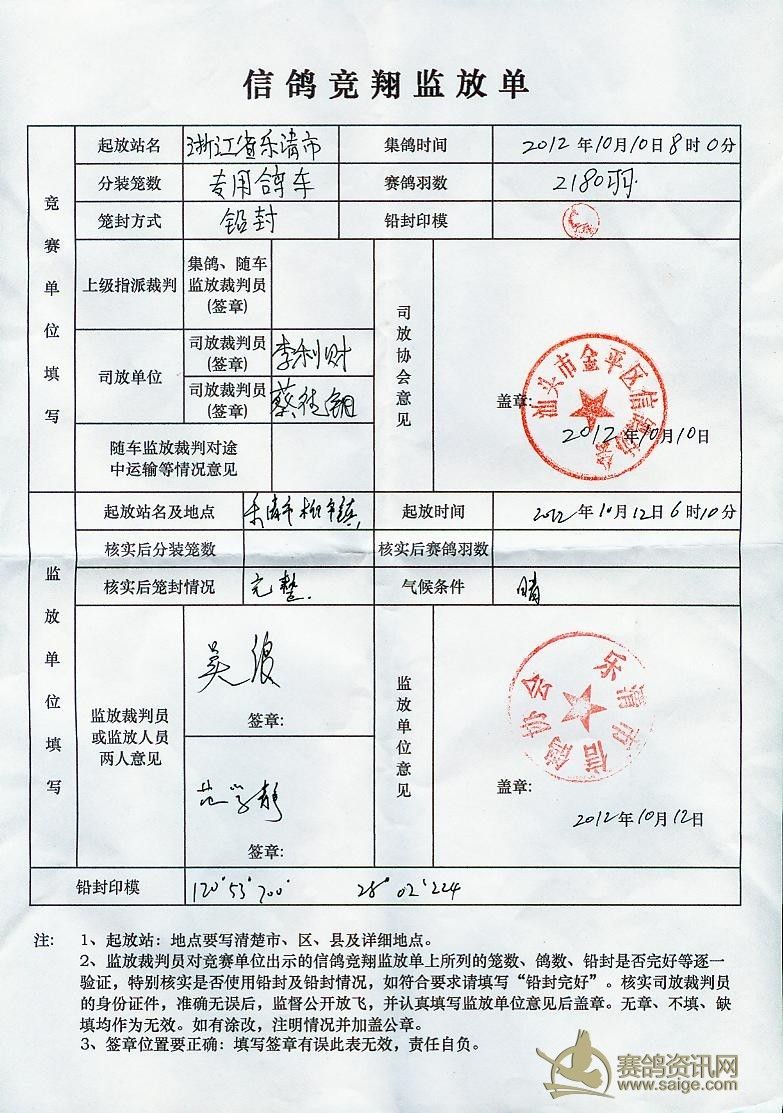 信鸽竞翔监放单
竞赛单位填写
起放站名 浙江省乐清市 集鸽时间 2012年10月10日8时0分
分装笼数 专用鸽车 赛鸽羽数 2180羽
笼封方式 铅封 铅封印模
上级指派裁判 集鸽、随车监放裁判员(签章)
司放单位 司放裁判员(签章) 李利财
司放裁判员(签章) 蔡
随车监放裁判对途中运输等情况意见
司放协会意见
汕头市金平区信鸽协会
盖章:
2012年10月10日
监放单位填写
起放站名及地点 乐清市柳市镇 起放时间 2012年10月12日6时10分
核实后分装笼数 核实后赛鸽羽数
核实后笼封情况 完整. 气候条件 晴
监放裁判员或监放人员两人意见
吴
签章:
范学静
签章:
监放单位意见
乐清市信鸽协会
盖章:
2012年10月12日
铅封印模 120°53'700" 28°02'224
注: 1、起放站:地点要写清楚市、区、县及详细地点。
2、监放裁判员对竞赛单位出示的信鸽竞翔监放单上所列的笼数、鸽数、铅封是否完好等逐一
验证,特别核实是否使用铅封及铅封情况,如符合要求请填写“铅封完好”。核实司放裁判员
的身份证件,准确无误后,监督公开放飞,并认真填写监放单位意见后盖章。无章、不填、缺
填均作为无效。如有涂改,注明情况并加盖公章。
3、签章位置要正确:填写签章有误此表无效,责任自负。
赛鸽资讯网
www.saige.com